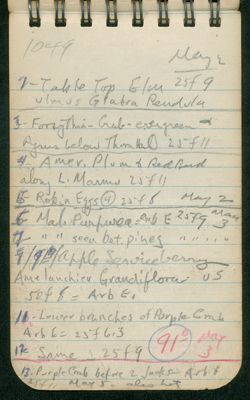 1049
May 2
1-Table Top Elm 25f9
Ulmus Glabra Pendula
3-Forsythia-Crab-evergreen &
below Thornhill 25f11
4-Amer. Plum & Red Bud
along L. Marmo 25f11
5-Robin Eggs (4) 25f8 May 2
6 Mah. Purpurea-Arb E 25f9 May 3
7 " " seen bet. pines " " " "
8/9/ Apple Serviceberry
Amelanchier Grandiflora US
50f8 = Arb E,
11-Lower branches of Purple Crab
Arb E = 25f6.3
12 Same 25f9
91° May 3
13. Purple Crab before 2 Arb E
25f11 May 3 - also hot